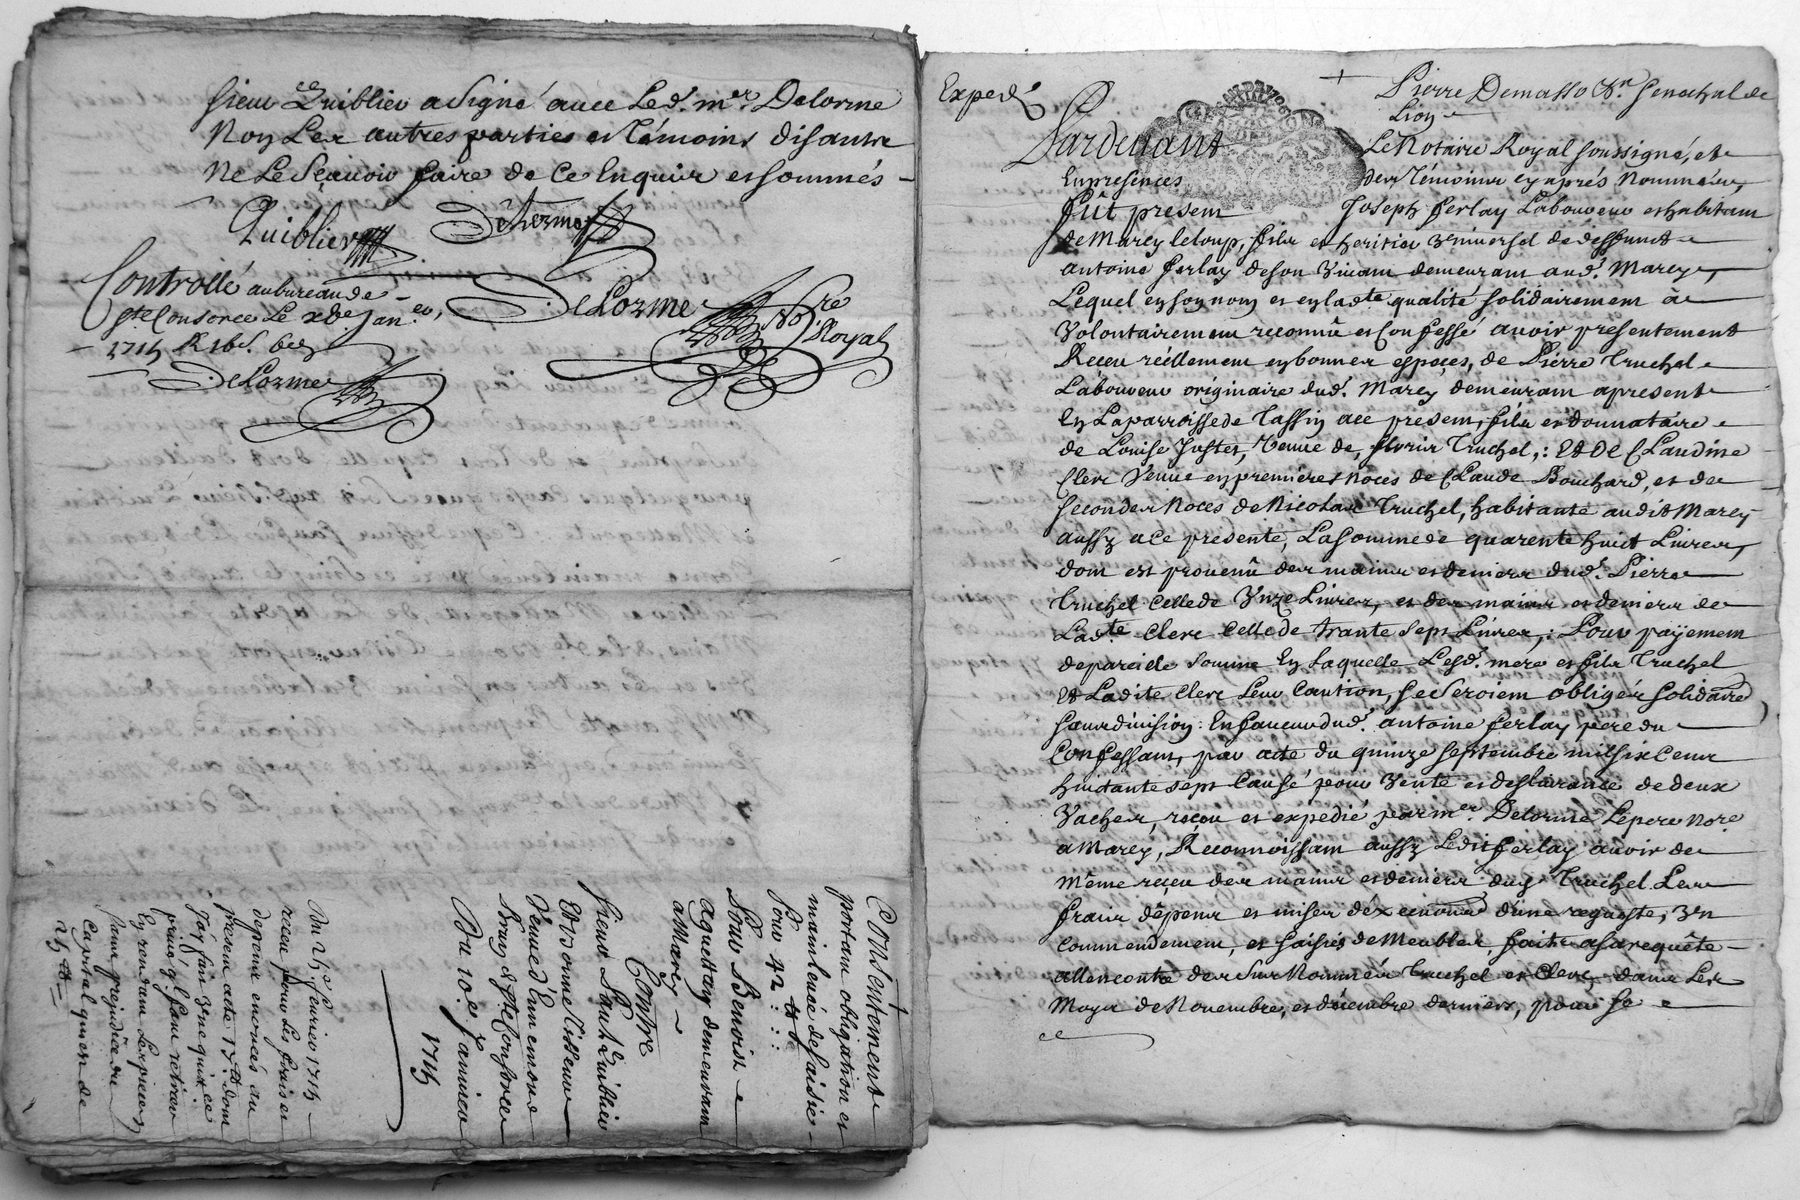 sieur Quiblier a signé avec Led. mer. Delorme
Non Les autres parties et Témoins disantz
Ne Le sçavoir faire de ce Enquis et sommés
Quiblier
DeLorme
Controllé au bureau de
ste Consorce Le xe Janer
1715 R
DeLorme
Nore
Royal
Consentement
portant obligation et
mainlevée de saisie
Pour 42 tt
Pour Benoist
aguettay demeurant
a Marcy
Contre
sieur Paul Quiblier
Et donne
Veuve d'Ennemond
ste Consorce
Du 10e Janvier
1715
Du 25e Fevrier 1715
receu pour Les frais et
depens enoncés au
present acte 17 tt dont
J'ay fait une quitce
Et rendant Les pieces
sans prejudice du
Capital qui est de
25 tt
Exped
Pierre Demasso Sr Senechal de
Lion
Pardevant Le Notaire Royal soussigné, et
En presences des Témoins cy aprés Nommés,
fût present Joseph ferlay Laboureur et habitant
de Marcy le loup, fils et heritier Universel de deffunct
antoine ferlay de son Vivant demeurant aud. Marcy,
Lequel en son nom et en lad.te qualité solidairement à
Volontairement reconnû et Confessé avoir presentement
Receu réellement en bonnes especes, de Pierre Truchel
Laboureur originaire dud. Marcy demeurant a present
En La parroisse de Tassin a ce present, fils et donnataire
de Louise Juster, Veuve de florir Truchel,: Et De Claudine
Clerc Veuve en premieres Noces de Claude Bouchard, et de
secondes Noces de Nicolas Truchel, habitante audit Marcy
aussy a ce presente, La somme de quarente huit Livres,
dont est provenû des mains et deniers dud. Pierre
Truchel celle de Unze Livres, et des mains et deniers de
Lad.te Clerc celle de trante sept Livres,: Pour payement
de pareille somme En Laquelle Lesd. mere et fils Truchel
Et Ladite Clerc Leur Caution, se seroient obligés solidairet
sans division: En faveur dud. antoine ferlay pere du
Confessant, par acte du quinze septembre mil six Cent
huitante sept Causé pour Vente et deslivrance de deux
Vaches, receu et expedié par mer. Delorme Le pere Nore
a Marcy, Reconnoissant aussy Ledit ferlay avoir de
même receu des mains et deniers dud Truchel Les
frais dépens et mises d'éxecution d'une requeste, Un
commendement, et saisies de Meubles faite a sa requête
allencontre des sus Nommés Truchel et Clerc, dans Les
Moys de Novembre, et décembre derniers, pour se